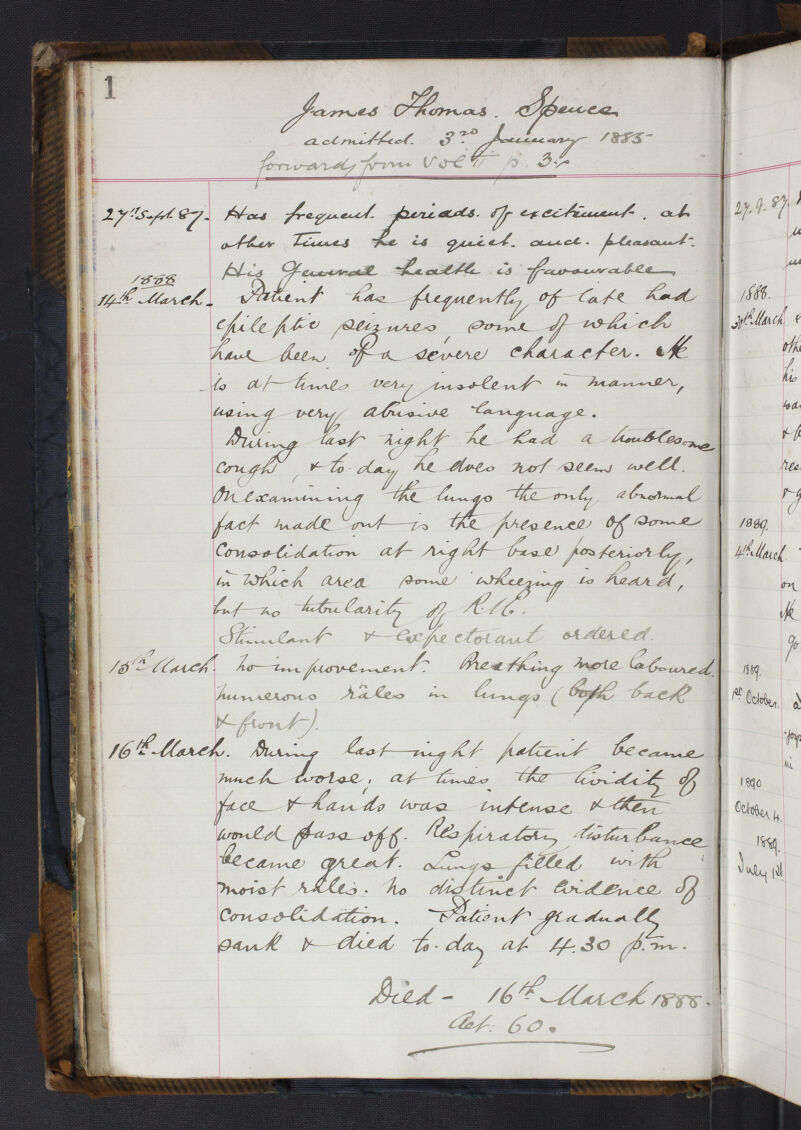 1
James Thomas. Spence
admitted. 3rd January 1885
forward from Vol II p. 3.
27th Sept. 87. Has frequent periods. of excitement. at
other times he is quiet. and. pleasant.
His General health is favourable
1888
14th March. Patient has frequently of late had
epileptic seizures some of which
have been of a severe character. He
is at times very insolent in manner,
using very abusive language.
During last night he had a troublesome
cough, & to-day he does not seem well.
On examining the lungs the only abnormal
fact made out is the presence of some
consolidation at right base posteriorly,
in which area some wheezing is heard,
but no tubularity of R.M.
Stimulant & Expectorant ordered.
15th March. No improvement. Breathing more laboured.
numerous râles in lungs (both back
& front).
16th March. During last night patient became
much worse; at times the lividity of
face & hands was intense & then
would pass off. Respiratory disturbance
became great. Lungs filled with
moist râles. No distinct evidence of
consolidation. Patient gradually
sank & died to-day at 4.30 p.m.
Died - 16th March 1888.
Aet: 60.
27.9.87.
1888.
30th March
oth
his
res
1889.
4th March
on
He
go
1889.
1st October.
in
1890
October 4.
1889.
July 1st